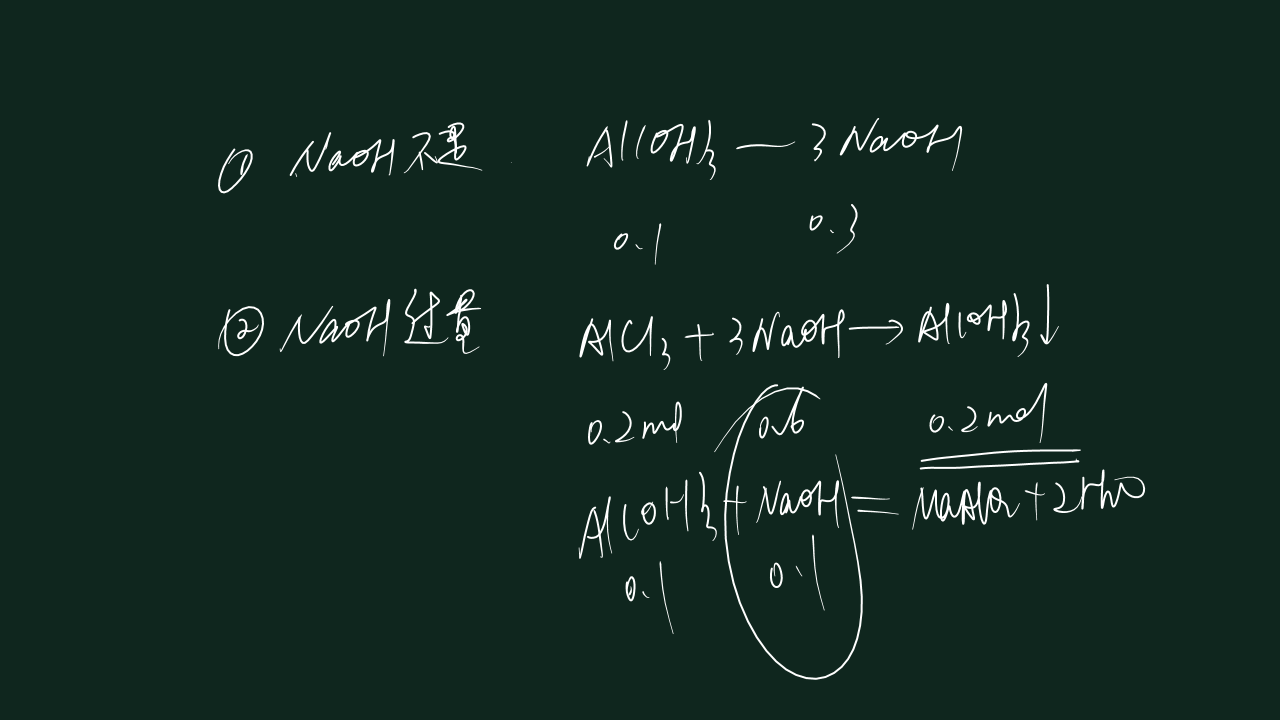 ① NaOH不足 Al(OH)3 — 3NaOH
0.1 0.3
② NaOH过量 AlCl3 + 3NaOH → Al(OH)3↓
0.2mol 0.6 0.2mol
Al(OH)3 + NaOH = NaAlO2 + 2H2O
0.1 0.1